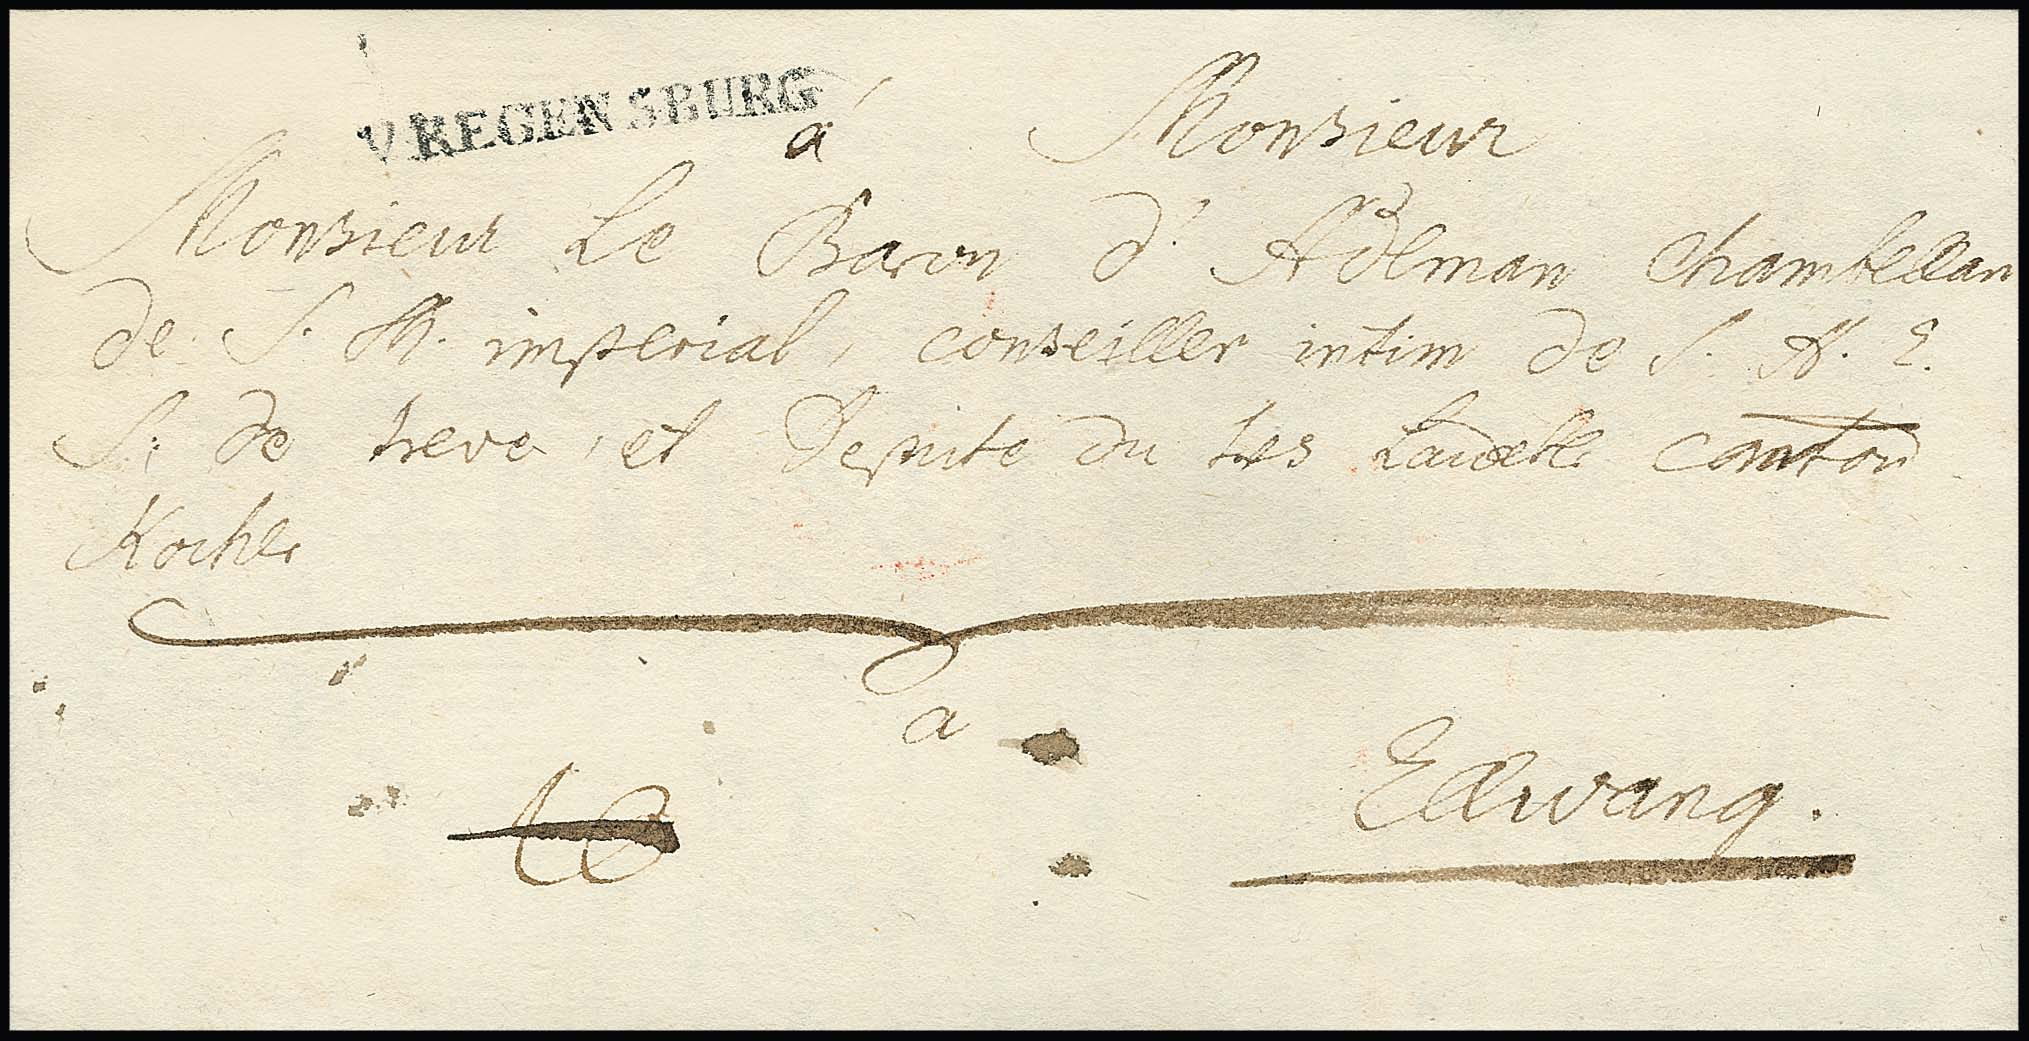 V.REGENSBURG
á Monsieur
Monsieur Le Baron d'Adelman Chambellan
de S. M. imperial, conseiller intim de S. A. E.
S. de treve, et Depute du tres Laudable canton
Kocher
a
Elwang.